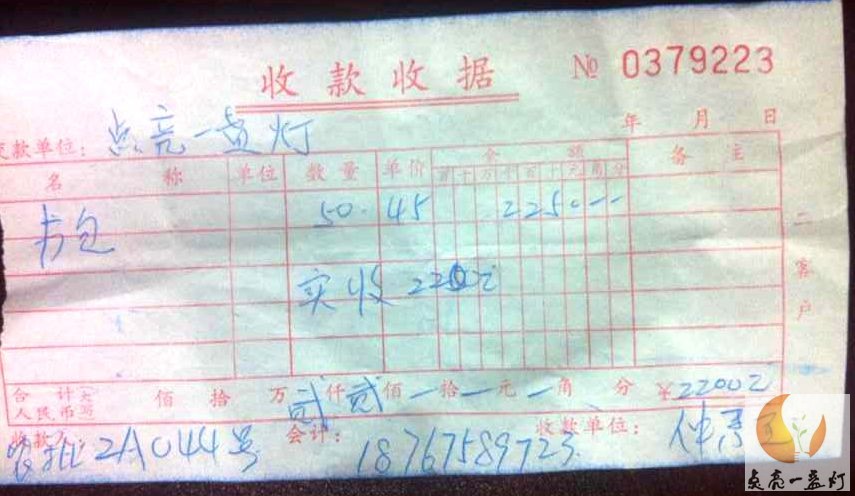 收款收据 № 0379223
年 月 日
交款单位：点亮一盏灯
名 称 单位 数量 单价 金 额 备 主
百十万千百十元角分
书包 50. 45 2250--
实收 2200元
二客户
合 计(大写)人民币 佰 拾 万 贰仟贰佰一拾一元一角 分 ￥2200元
收款人: 会计： 收款单位：
2A044号 18767589723
点亮一盏灯